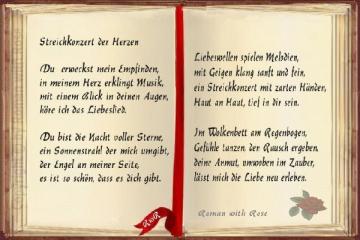 Streichkonzert der Herzen
Du erweckst mein Empfinden,
in meinem Herz erklingt Musik,
mit einem Blick in deinen Augen,
höre ich das Liebeslied.
Du bist die Nacht voller Sterne,
ein Sonnenstrahl der mich umgibt,
der Engel an meiner Seite,
es ist so schön, dass es dich gibt.
Liebeswellen spielen Melodien,
mit Geigen klang sanft und fein,
ein Streichkonzert mit zarten Händer,
Haut an Haut, tief in dir sein.
Im Wolkenbett am Regenbogen,
Gefühle tanzen, der Rausch ergeben,
deine Anmut, umwoben im Zauber,
lässt mich die Liebe neu erleben.
Roman with Rose
RwR